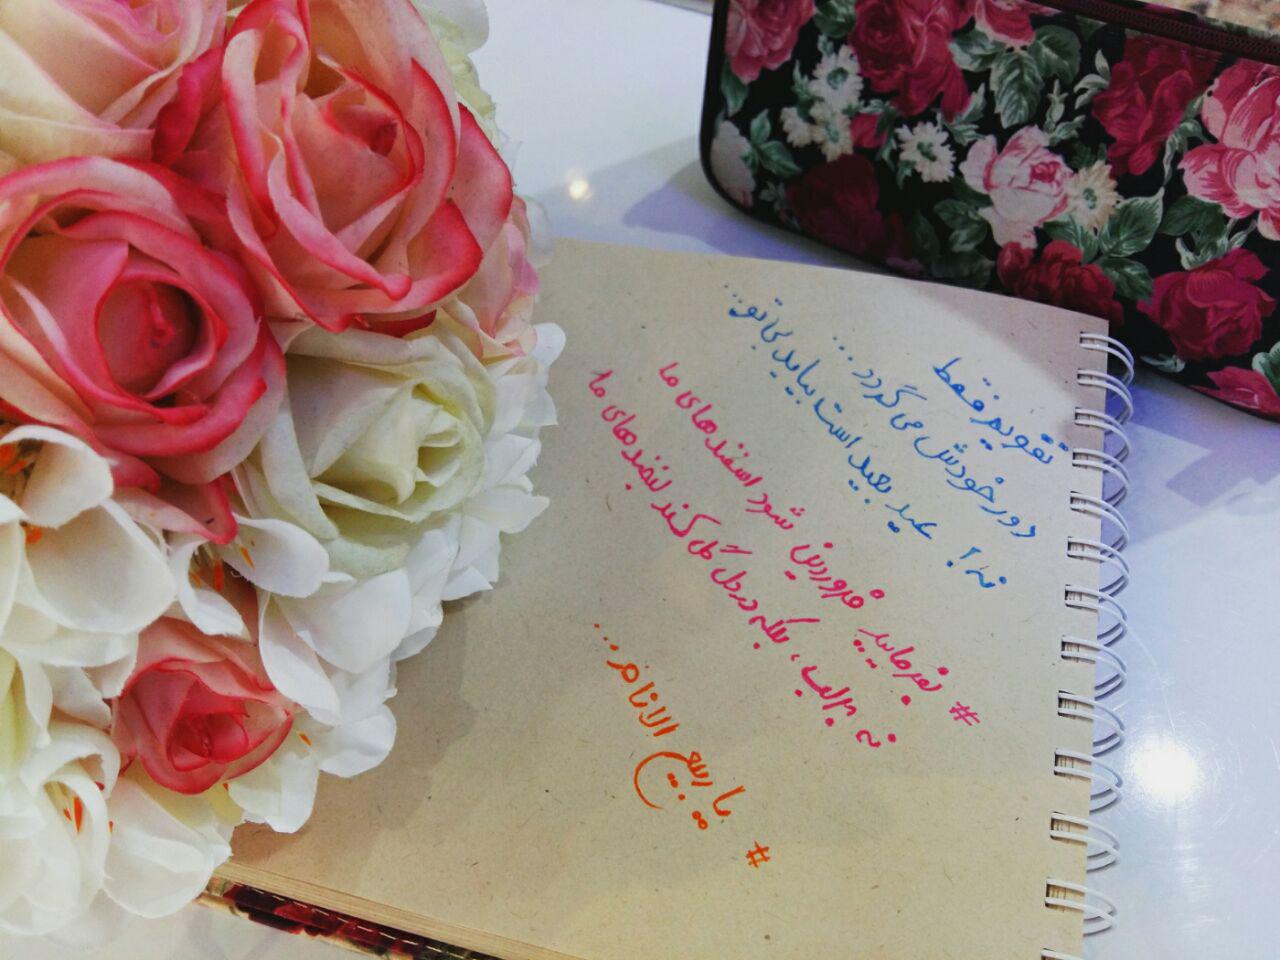 تقویم فقط
دور خودش می گردد...
نه! عید بعید است بیاید بی تو...
# بفرمایید فروردین شود اسفندهای ما
نه بر لب، بلکه در دل گل کند لبخندهای ما
# یا ربیع الانام...